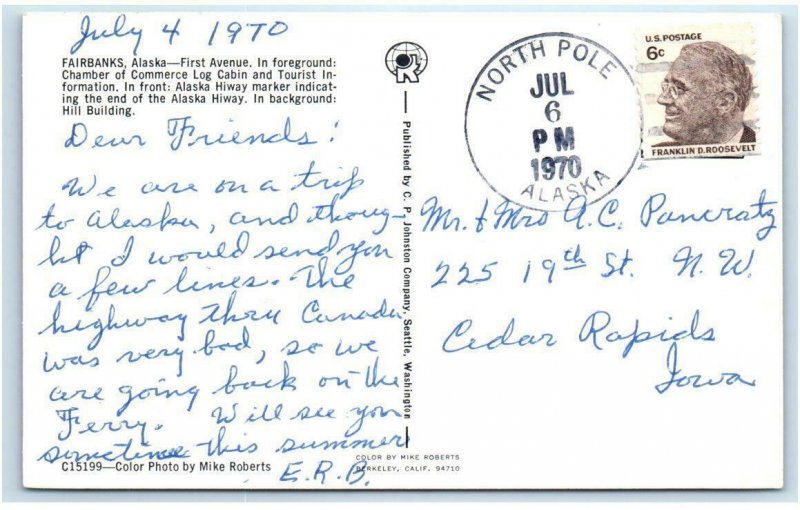 July 4 1970
FAIRBANKS, Alaska—First Avenue. In foreground:
Chamber of Commerce Log Cabin and Tourist In-
formation. In front: Alaska Hiway marker indicat-
ing the end of the Alaska Hiway. In background:
Hill Building.
Dear Friends!
We are on a trip
to Alaska, and thoug-
ht I would send you
a few lines. The
highway thru Canada
was very bad, so we
are going back on the
Ferry. Will see you
sometime this summer
E.R.B.
C15199—Color Photo by Mike Roberts
Published by C. P. Johnston Company, Seattle, Washington
COLOR BY MIKE ROBERTS
BERKELEY, CALIF. 94710
NORTH POLE
JUL
6
PM
1970
ALASKA
U.S. POSTAGE
6c
FRANKLIN D. ROOSEVELT
Mr. & Mrs A.C. Pancratz
225 19th St. N.W.
Cedar Rapids
Iowa